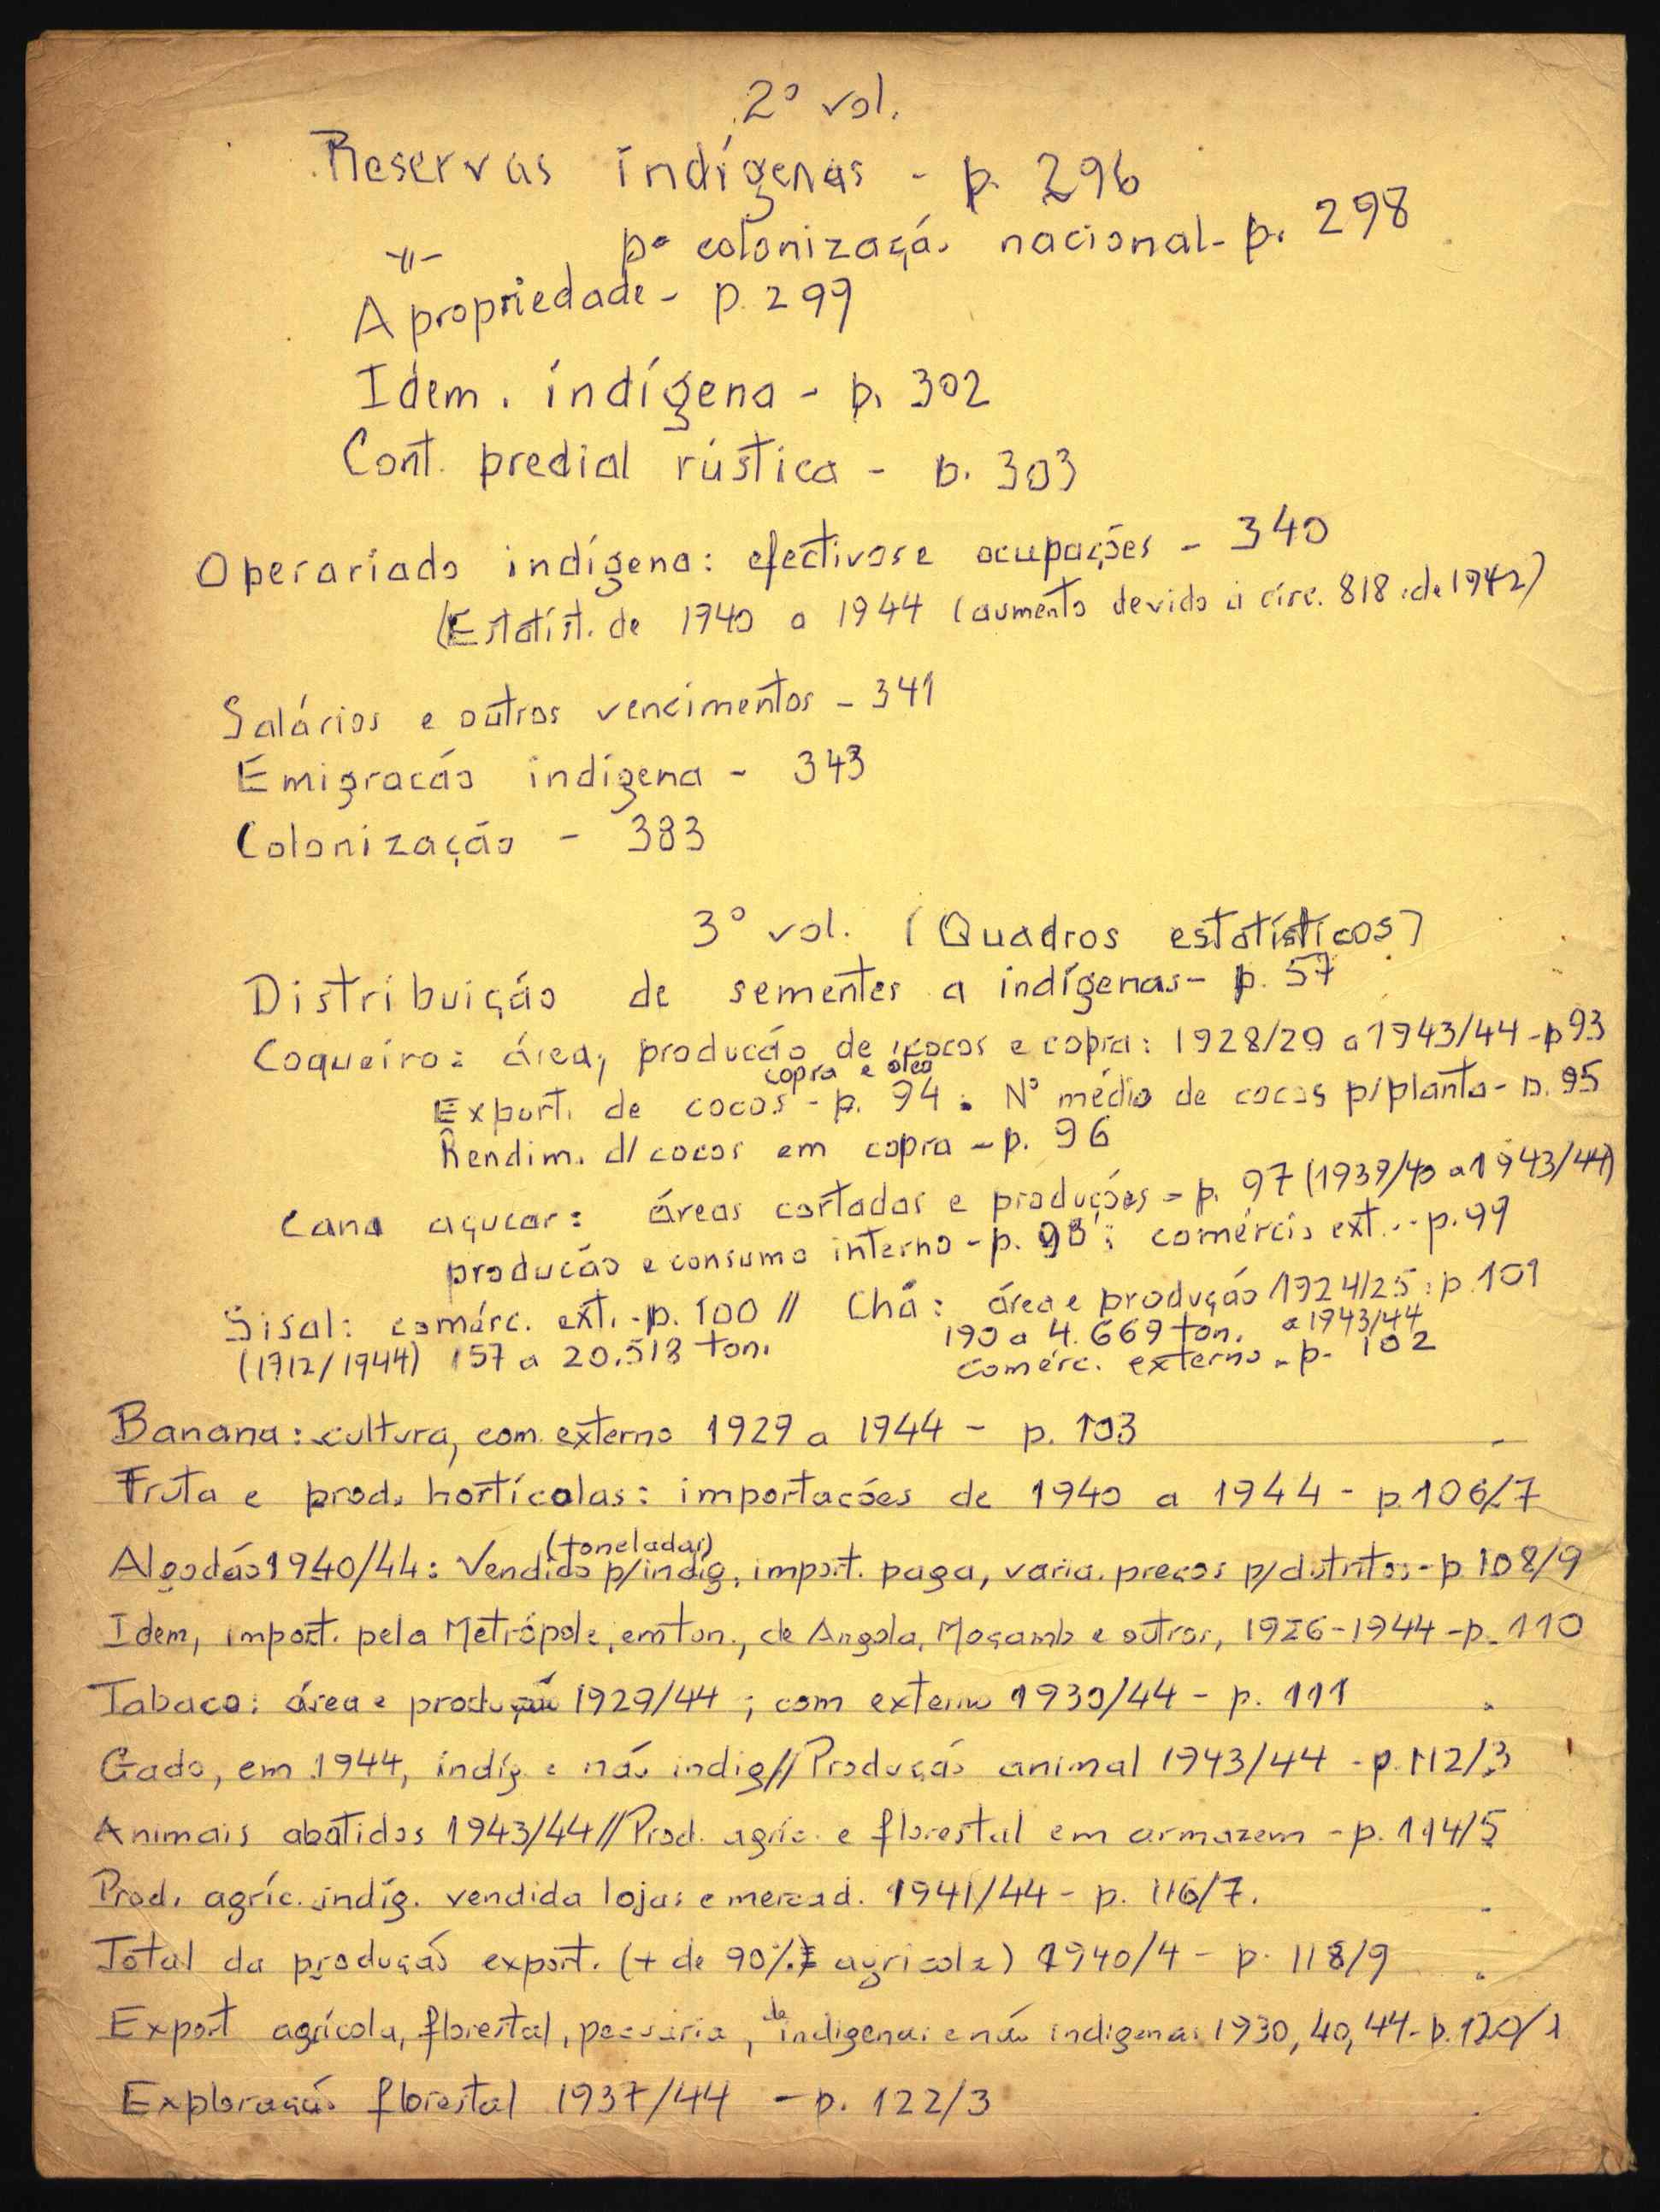 2º vol.
Reservas indígenas - p. 296
-"- pª colonização nacional - p. 298
A propriedade - p. 299
Idem. indígena - p. 302
Cont. predial rústica - p. 303
Operariado indígena: efectivos e ocupações - 340
(Estatíst. de 1940 a 1944 (aumento devido à circ. 818 de 1942)
Salários e outros vencimentos - 341
Emigracão indígena - 343
Colonização - 383
3º vol. (Quadros estatísticos)
Distribuição de sementes a indígenas - p. 57
Coqueiro: área, producão de cocos e copra: 1928/29 a 1943/44 - p 93
copra e oleo
Export. de cocos - p. 94. Nº médio de cocos p/planta - p. 95
Rendim. d/ cocos em copra - p. 96
Cana açucar: áreas cortadas e produções - p. 97 (1939/40 a 1943/44)
producão e consumo interno - p. 98; comércio ext. - p. 99
Sisal: comérc. ext. - p. 100 // Chá: área e produção 1924/25: p. 101
a 1943/44
(1912/1944) 157 a 20.518 ton. 190 a 4.669 ton.
comérc. externo - p. 102
Banana: cultura, com. externo 1929 a 1944 - p. 103
Fruta e prod. hortícolas: importacões de 1940 a 1944 - p. 106/7
(toneladas)
Algodão 1940/44: Vendido p/indíg, import. paga, varia. precos p/distritos - p. 108/9
Idem, import. pela Metrópole, em ton., de Angola, Moçamb e outros, 1926-1944 - p. 110
Tabaco: área e produção 1929/44; com externo 1930/44 - p. 111
Gado, em 1944, indíg e não indig // Produção animal 1943/44 - p. 112/3
Animais abatidos 1943/44 // Prod. agríc. e florestal em armazem - p. 114/5
Prod. agríc. indíg. vendida lojas e mercad. 1941/44 - p. 116/7.
Total da produção export. (+ de 90% agricola) 1940/4 - p. 118/9
de
Export agrícola, florestal, pecuária, indigenas e não indigenas 1930, 40, 44 - p. 120/1
Exploração florestal 1937/44 - p. 122/3